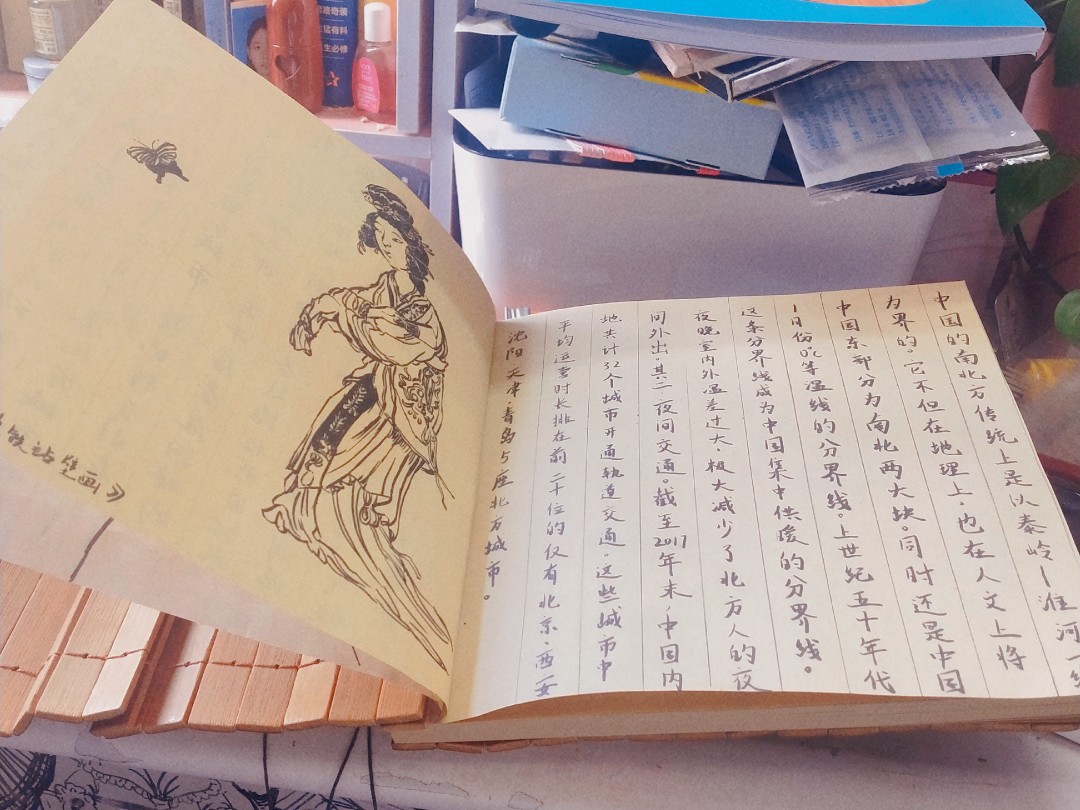 铁站壁画》
中国的南北方传统上是以秦岭—淮河一线
为界的。它不但在地理上,也在人文上将
中国东部分为南北两大块。同时还是中国
1月份0℃等温线的分界线。上世纪五十年代
这条分界线成为中国集中供暖的分界线。
夜晚室内外温差过大,极大减少了北方人的夜
间外出,其二夜间交通。截至2017年末,中国内
地共计32个城市开通轨道交通,这些城市中
平均运营时长排在前二十位的仅有北京·西安
沈阳·天津·青岛5座北方城市。
奇装
猛有料
生必修